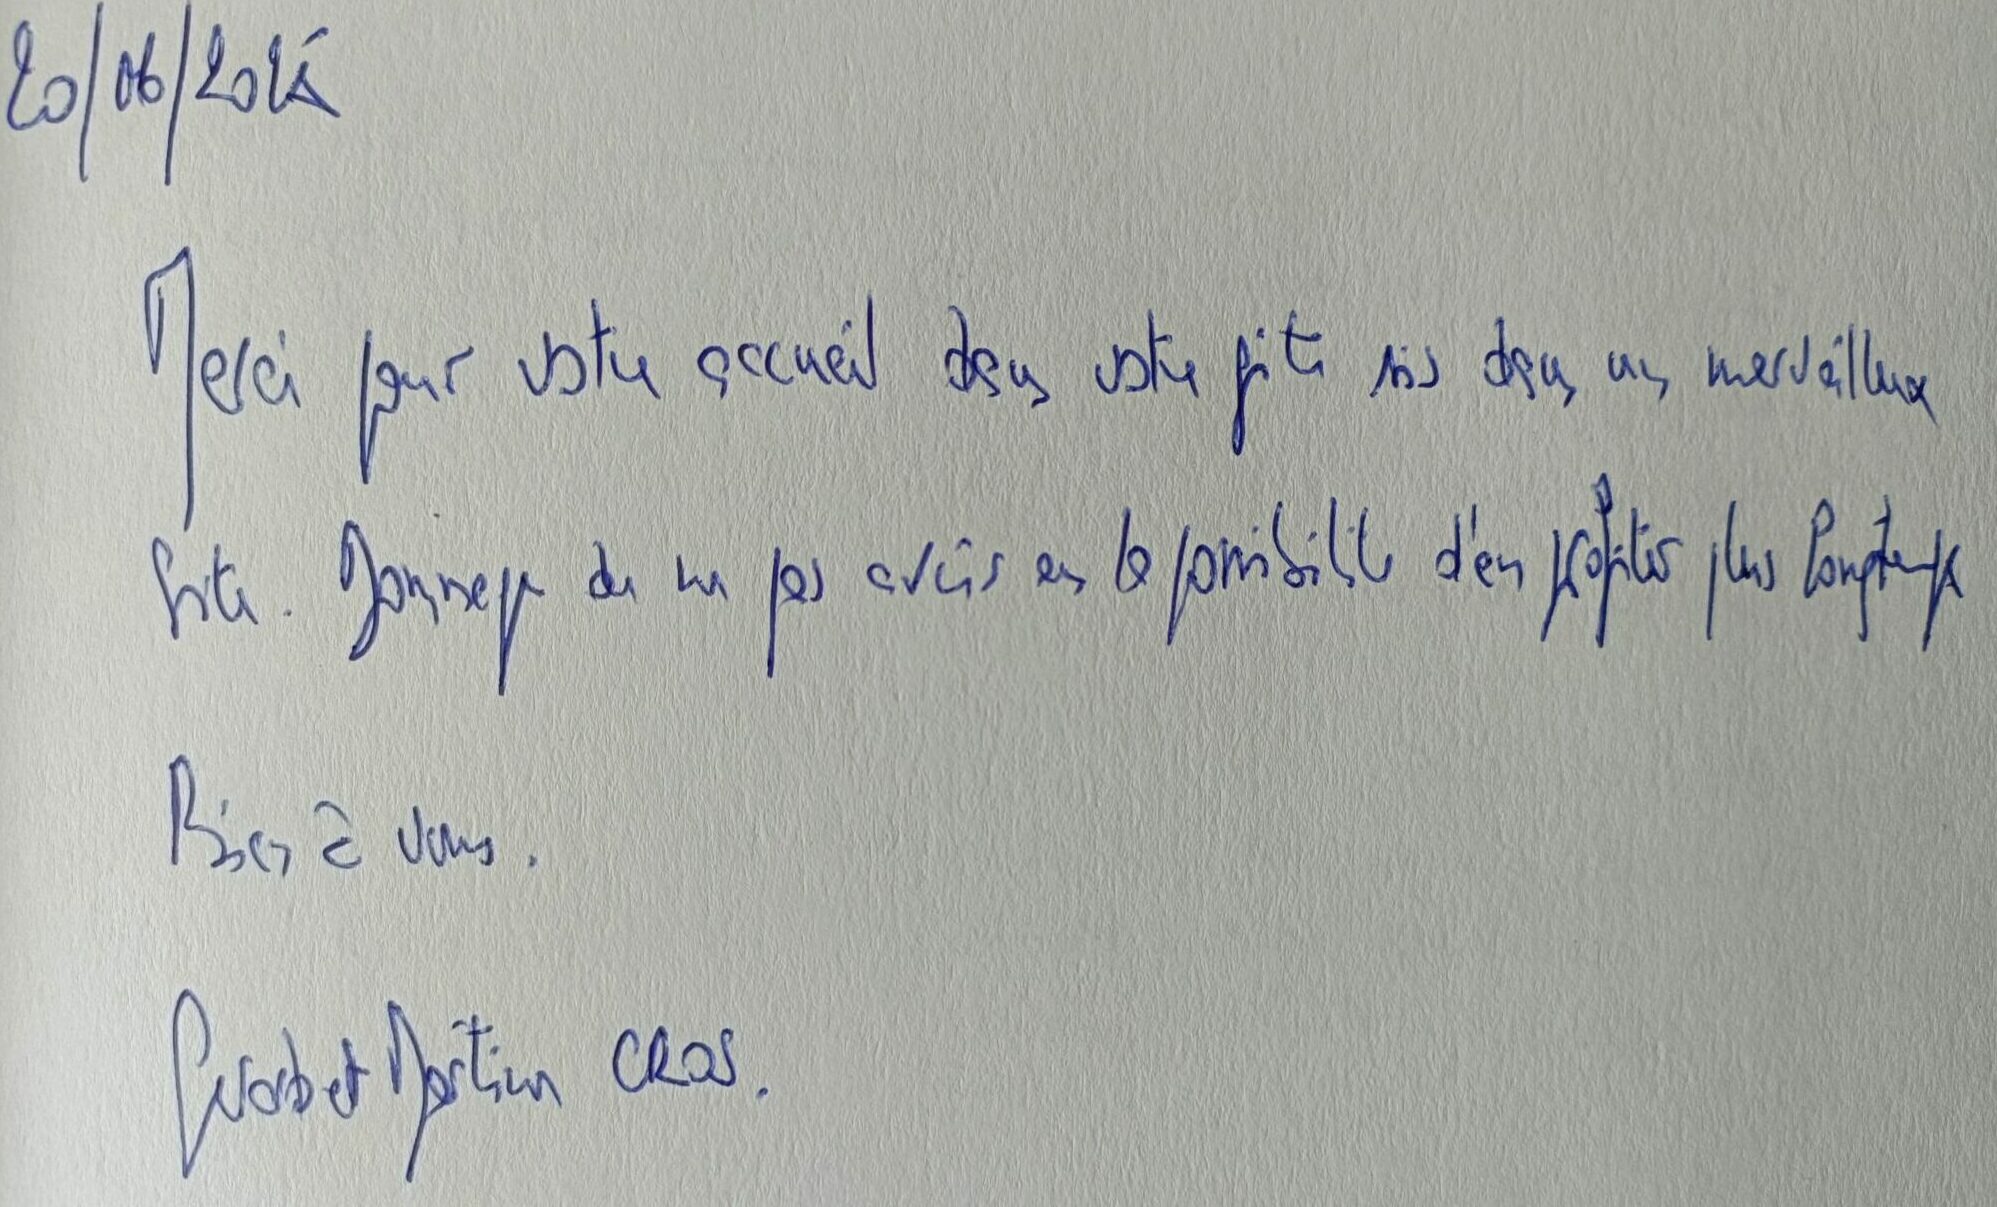 20/06/2024
Merci pour votre accueil dans votre gîte sis dans un merveilleux
site. Dommage de ne pas avoir eu la possibilité d'en profiter plus longtemps
Bien à vous.
et Martine CROS.